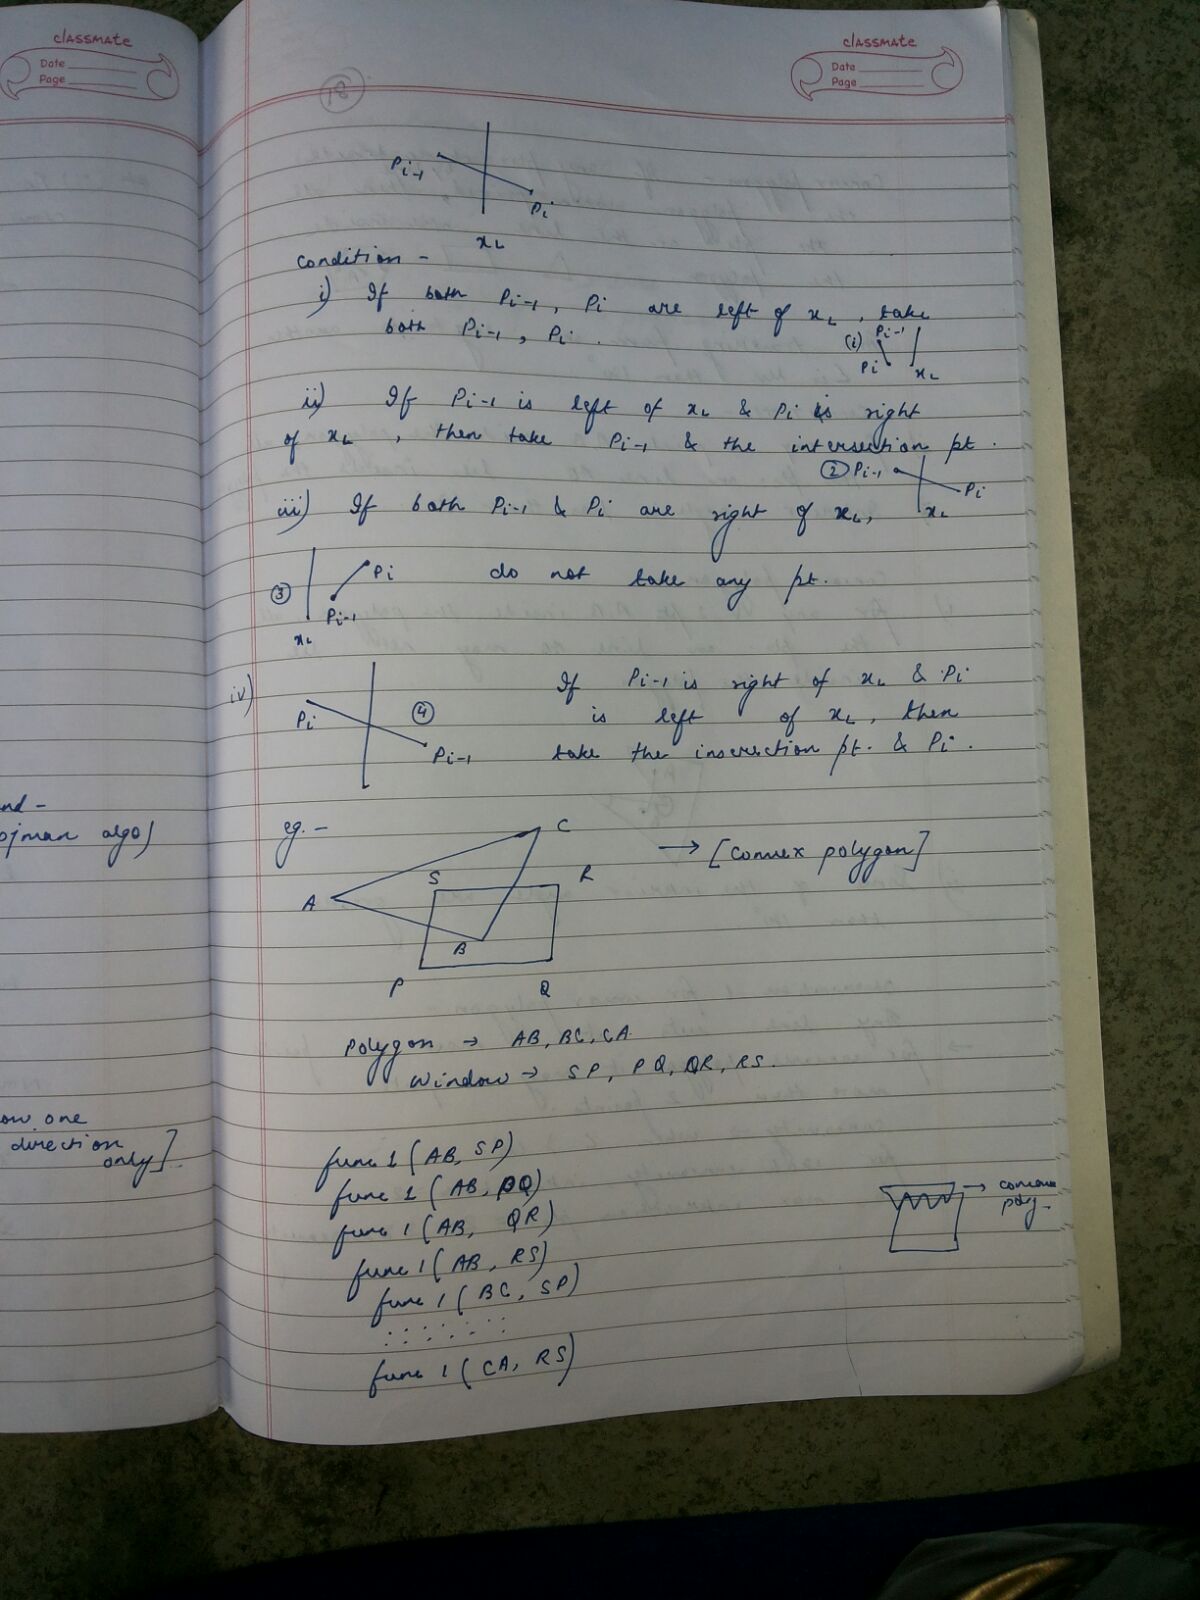 classmate
Date
Page
nd -
man algo)
ow one
direction
only]
classmate
Date
Page
18
Pi-1
Pi
xL
condition -
i) If both Pi-1, Pi are left of xL, take
both Pi-1, Pi.
(i) Pi-1
Pi xL
ii) If Pi-1 is left of xL & Pi is right
of xL, then take Pi-1 & the intersection pt.
② Pi-1
Pi
xL
iii) If both Pi-1 & Pi are right of xL,
③ Pi do not take any pt.
Pi-1
xL
iv) If Pi-1 is right of xL & Pi
Pi ④ is left of xL, then
Pi-1 take the insersection pt. & Pi.
eg. -
C
→ [Convex polygon]
S R
A
B
P Q
Polygon → AB, BC, CA
Window → SP, PQ, QR, RS.
func 1 (AB, SP)
func 1 (AB, PQ)
func 1 (AB, QR)
func 1 (AB, RS)
→ concave
poly-
func 1 (BC, SP)
: : : : : :
func 1 (CA, RS)